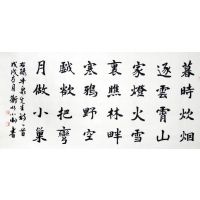 暮時炊烟
逐雲霄山
家燈火雪
裏瞧林畔
寒鴉野空
戲欲把彎
月做小巢
先生詩一首
戊戌
書